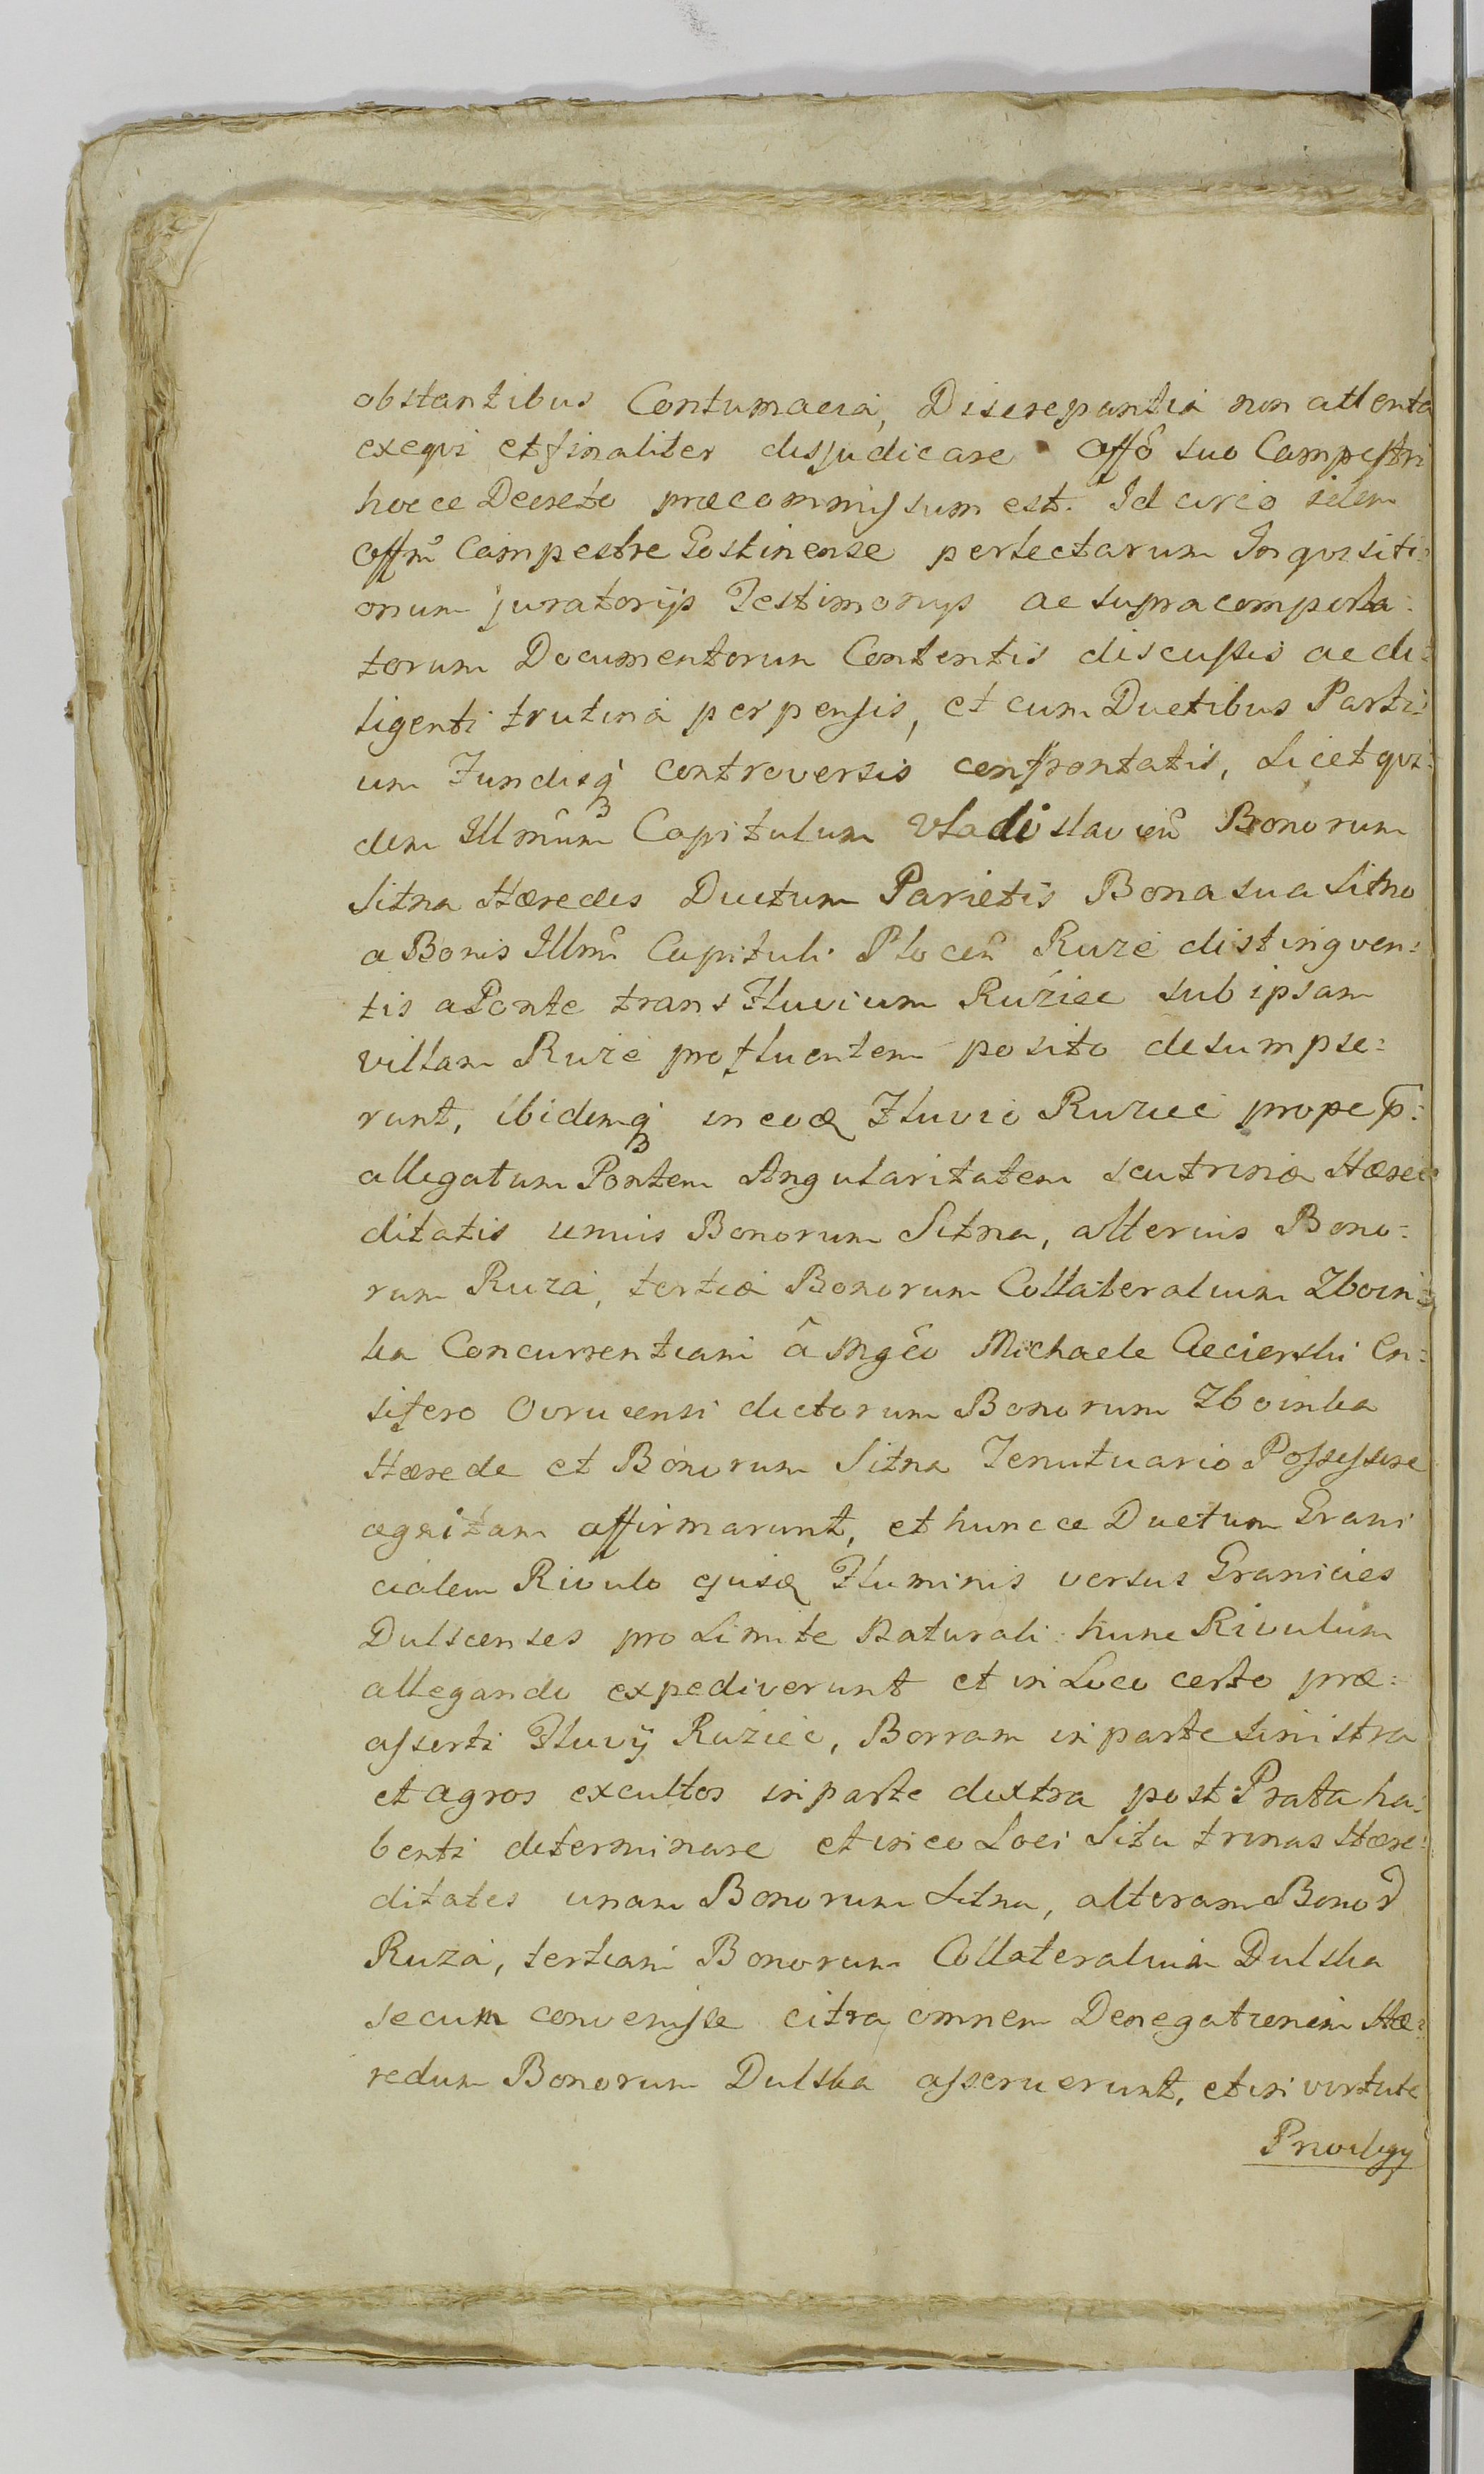 obstantibus Contumacia, Discrepantia non attenta
exeqvi et finaliter disjudicare Offô suo Campestri
hocce Decreto præcommissum est. Idcirco idem
Offm̃ Campestre Gostinense perlectarum Inqvisiti=
onum juratorijs Testimonijs ac supracomporta=
torum Documentorum Contentis discussis ac di=
ligenti trutina perpensis, et cum Ductibus Parti=
um Fundisq̃ controversis confrontatis, Licet qvi=
dem Illmũm Capitulum Vladislavieñ Bonorum
Sitna Hæredes Ductum Parietis Bona sua Sitno
a Bonis Illm̃i Capituli Ploceñ Ruże distingven=
tis a Ponte trans Fluvium Rużiec sub ipsam
villam Ruże profluentem posito desumpse=
runt, ibidemq̃ in eoq Fluvio Rużiec prope p̃=
allegatum Pontem Angularitatem seu trinæ Hære=
ditatis unius Bonorum Sitna, alterius Bono=
rum Ruza, tertiæ Bonorum Collateralium Zboin=
ka Concurrentiam â Mgc̃o Michaele Cecierski En=
sifero Ovrucensi dictorum Bonorum Zboinka
Hærede et Bonorum Sitna Tenutuario Possessore
agnitam affirmarunt, et huncce Ductum Grani
cialem Rivulo ejusq Fluminis versus Granicies
Dulscenses pro Limite Naturali hunc Rivulum
allegando expediverunt et in Loco certo præ=
asserti Fluvij Rużiec, Borram in parte sinistra
et agros excultos in parte dextra post Prata ha=
benti determinare et in eo Loci Situ trinas Hære=
ditates unam Bonorum Sitna, alteram Bonor̃
Ruza, tertiam Bonorum Collateralium Dulska
secum convenisse citra omnem Denegationem Hæ=
redum Bonorum Dulska asseruerunt, et in virtute
Privilegij